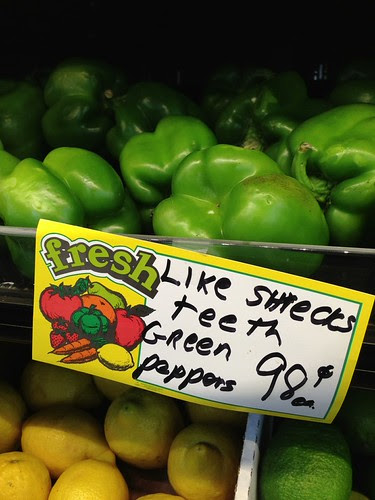 fresh
Like Shrecks
teeth
Green
peppers 98¢
ea.